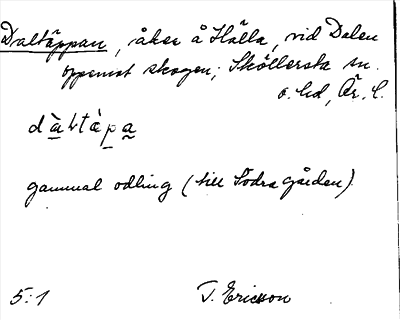 Daltäppan, åker å Hälla, vid Dalen
uppemot skogen; Sköllersta sn.
o. hd, Är. l.
dàltàpa
gammal odling (till Södra gården)
5:1 T. Ericsson